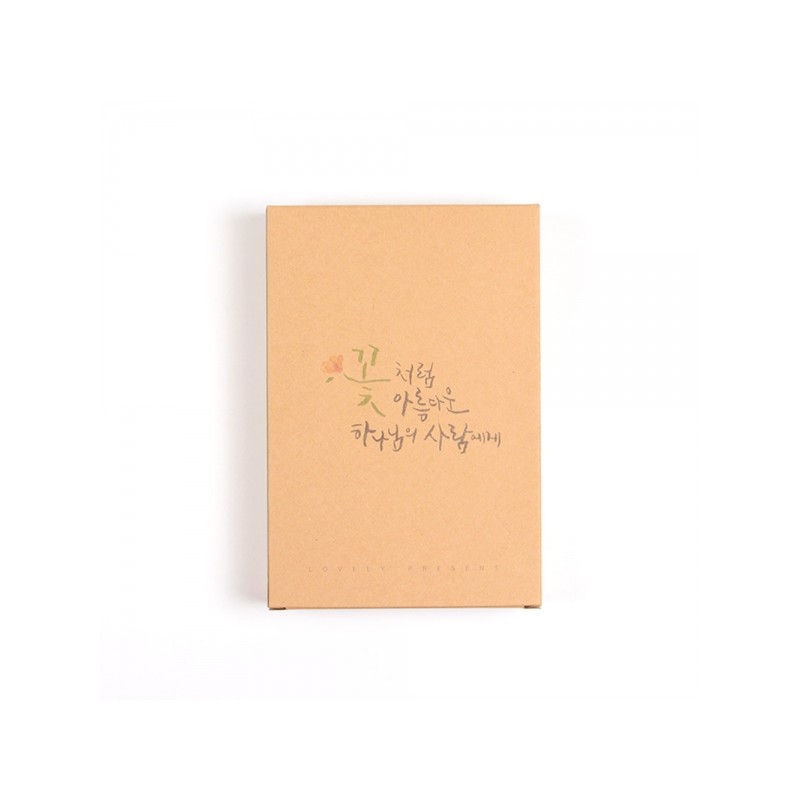 꽃처럼
아름다운
하나님의 사람에게
LOVELY PRESENT